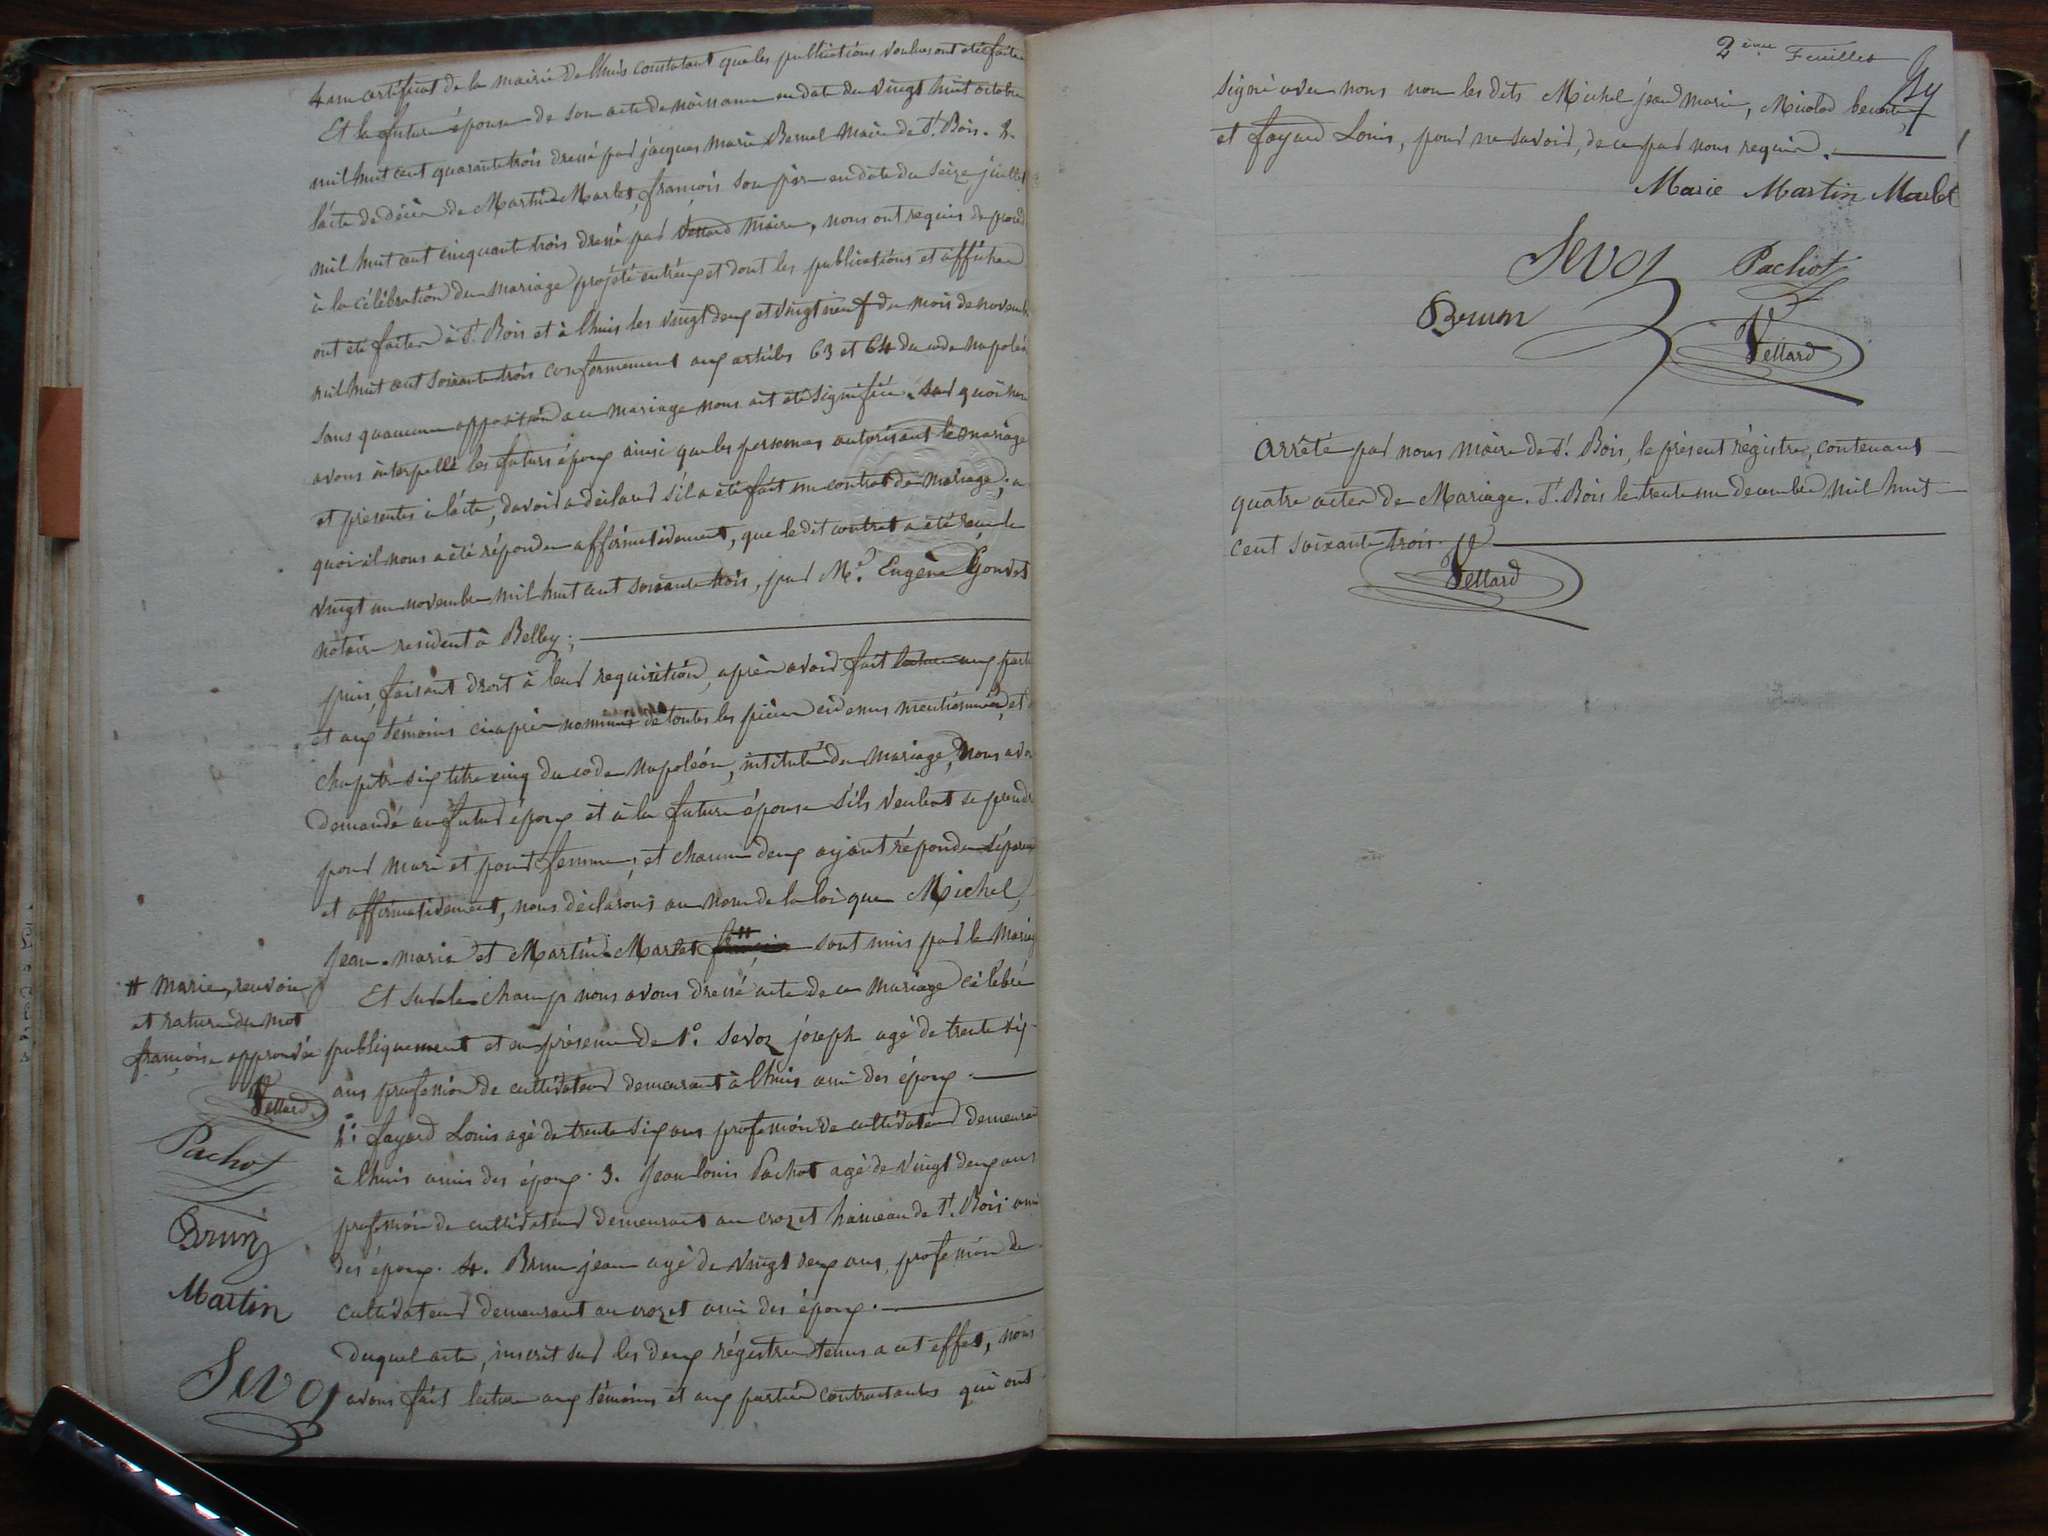 4 un certificat de la mairie de lhuis constatant que les publications voulues ont été faites
Et la future épouse de son acte de naissance en date du vingt huit octobre
mil huit cent quarante trois dressé par jacques marie Bernel Maire de St. Bois. 2.
l'acte de décès de Martin Marlet, françois son père en date du seize juillet
mil huit cent cinquante trois dressé par Vettard Maire, nous ont requis de procéd
à la célébration du mariage projeté entr'eux et dont les publications et affiches
ont été faites à St. Bois et à lhuis les vingt deux et vingt neuf du mois de novembre
mil huit cent soixante trois conformement aux articles 63 et 64 du code napoléon
sans qu'aucune opposition a ce mariage nous ait été signifiée. Sur quoi nous
avons interpellé les futurs époux ainsi que les personnes autorisant le mariage
et présentes à l'acte, d'avoir a déclarer s'il a été fait un contrat de mariage; a
quoi il nous a été répondu affirmativement, que le dit contrat a été reçu le
vingt un novembre mil huit cent soixante trois, par Me. Eugène
notaire resident à Belley;
puis, faisant droit à leur requisition, après avoir fait lecture aux parties
et aux témoins ci après nommés de toutes les pièces ci dessus mentionnées, et
chapitre six titre cinq du code Napoléon, intitulé du mariage, Nous avons
demandé au futur époux et à la future épouse s'ils veulent se prendre
pour mari et pour femme; et chacun d'eux ayant répondu séparem
et affirmativement, nous déclarons au nom de la loi que Michel,
Jean-marie et Martin Marlet françoise # sont unis par le Mariage
Et sur le champ nous avons dressé acte de ce mariage célébré
publiquement et en présence de 1° Sevoz joseph agé de trente six
ans profession de cultivateur demeurant à lhuis ami des époux.
2° fayard Louis agé de trente six ans profession de cultivateur demeurant
à lhuis ami des époux. 3. Jean louis Pachot agé de vingt deux ans
profession de cultivateur demeurant au crozet hameau de St. Bois ami
des époux. 4. Brun jean agé de vingt deux ans, profession de
cultivateur demeurant au crozet ami des époux.
Duquel acte, inscrit sur les deux régistres tenus a cet effet, nous
avons fait lecture aux témoins et aux parties contractantes qui ont
# Marie, renvoi
et rature du mot
françoise approuvée
Vettard
Pachot
Brun
Martin
Sevoz
2ème Feuillet
signé avec nous non les dits Michel jean marie, Micolod benoite
et fayard Louis, pour ne savoir, de ce par nous requis.
Marie Martin Marlet
Sevoz Pachot
Brun
Vettard
Arrêté par nous Maire de St. Bois, le présent régistre, contenant
quatre actes de Mariage. St. Bois le trente un decembre mil huit
cent soixante trois.
Vettard